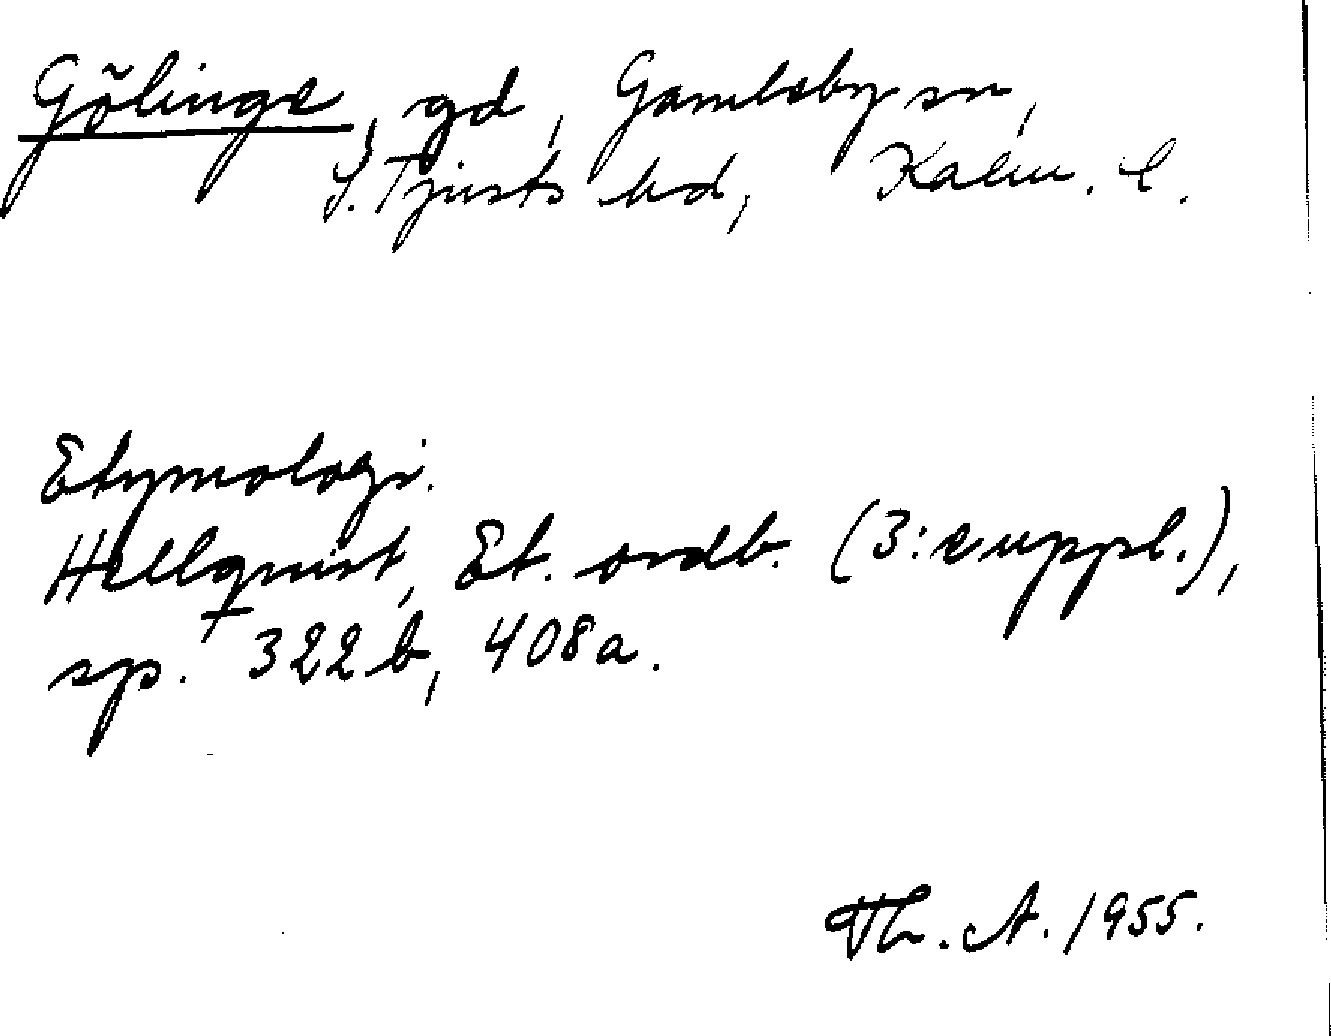 Gölinge, gd, Gamleby sn,
S. Tjusts hd, Kalm. l.
Etymologi.
Hellquist, Et. ordb. (3: suppl.),
sp. 322 b, 408 a.
Th. A. 1955.